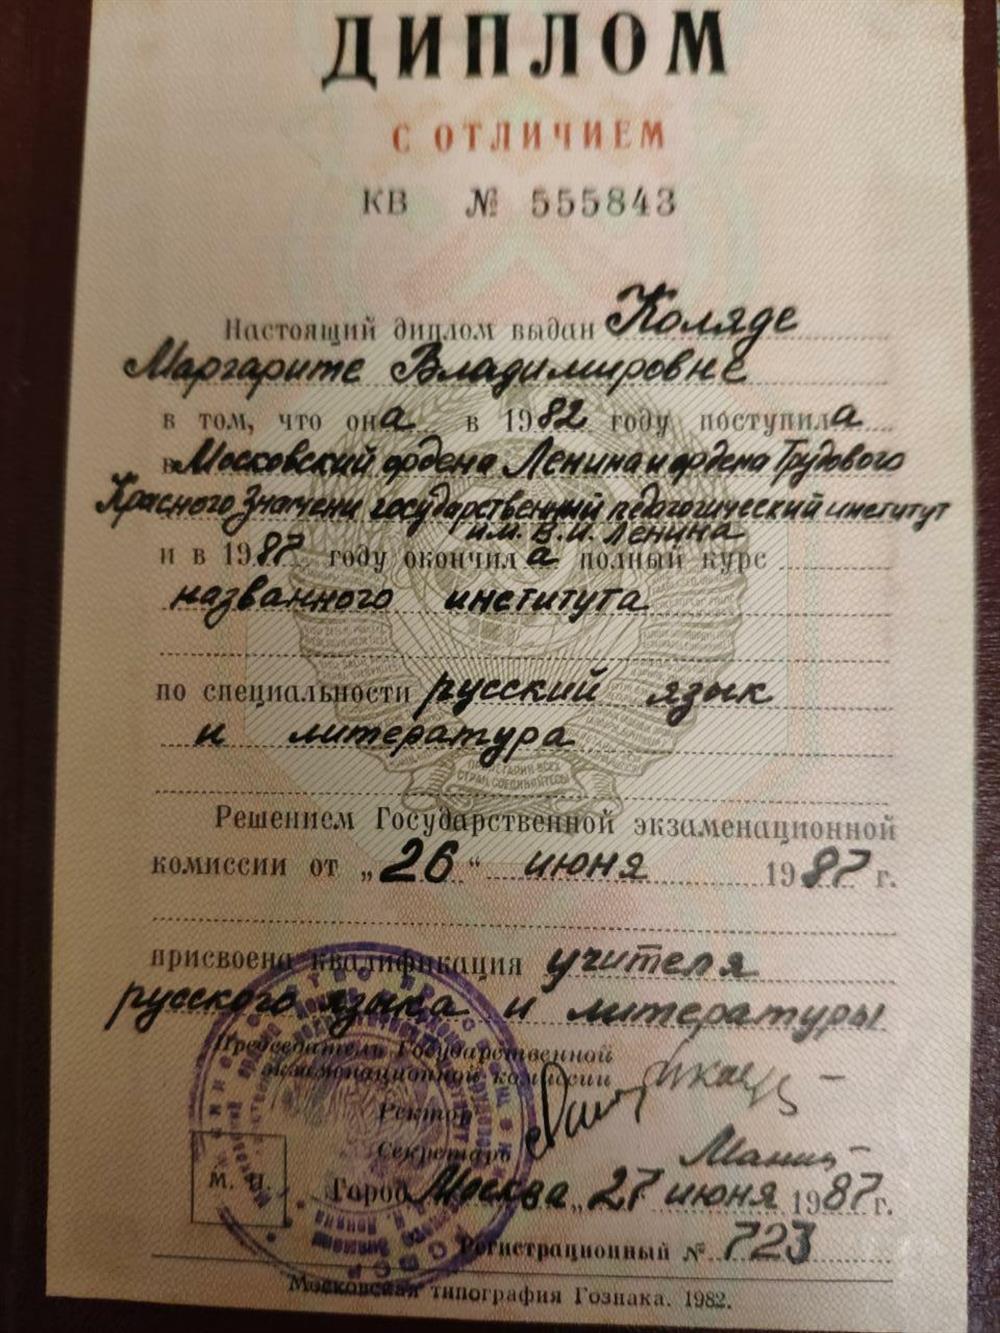 ДИПЛОМ
С ОТЛИЧИЕМ
КВ № 555843
Настоящий диплом выдан Коляде
Маргарите Владимировне
в том, что она в 1982 году поступила
в Московский ордена Ленина и ордена Трудового
Красного Знамени государственный педагогический институт
им. В.И. Ленина
и в 1987 году окончила полный курс
названного института
по специальности русский язык
и литература
Решением Государственной экзаменационной
комиссии от „26“ июня 1987 г.
присвоена квалификация учителя
русского языка и литературы
Председатель Государственной
экзаменационной комиссии
Ректор
Секретарь
М. П.
Город Москва „27 июня 1987 г.
Регистрационный № 723
Московская типография Гознака. 1982.